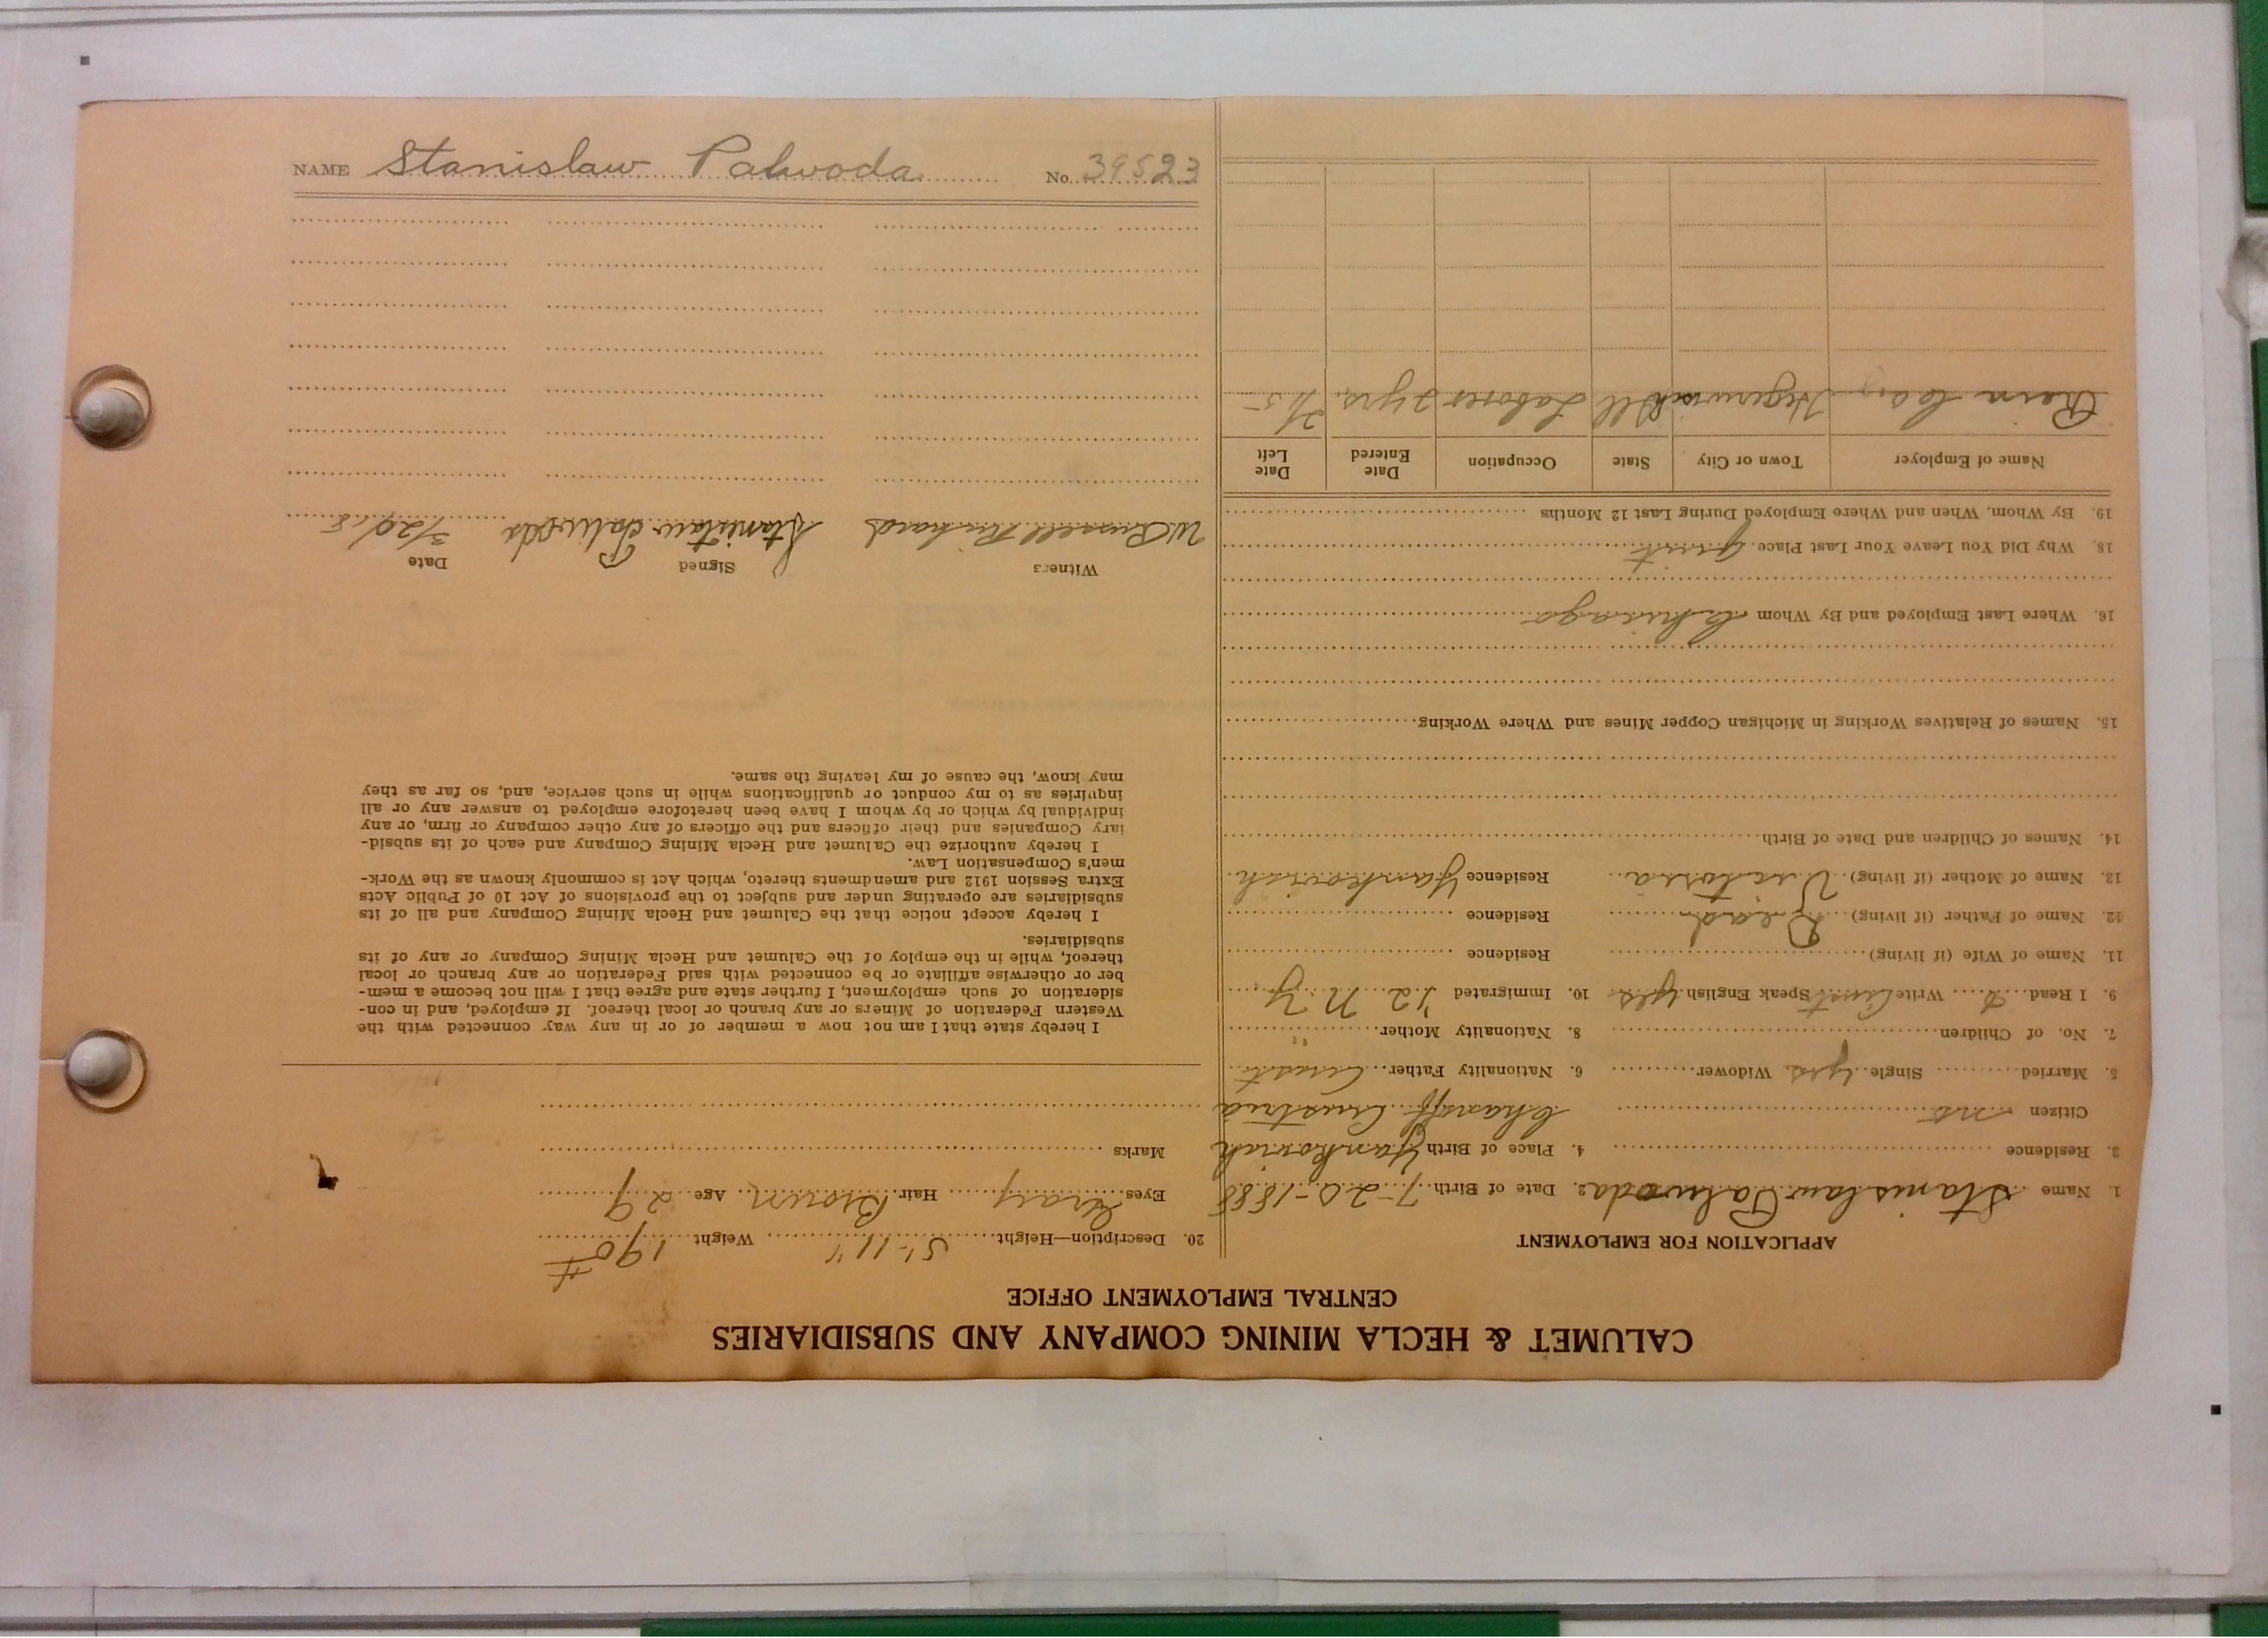 CALUMET & HECLA MINING COMPANY AND SUBSIDIARIES
CENTRAL EMPLOYMENT OFFICE
APPLICATION FOR EMPLOYMENT
1. Name Stanislaw Palwoda 2. Date of Birth 7-20-1888
3. Residence 4. Place of Birth Yankovich
Citizen no Chanoff Austria
5. Married Single yes Widower 6. Nationality Father Aust
7. No. of Children 8. Nationality Mother "
9. I Read Write Aust Speak English yes 10. Immigrated '12 N Y
11. Name of Wife (if living) Residence
12. Name of Father (if living) Dead Residence
13. Name of Mother (if living) Victoria Residence Yankovich
14. Names of Children and Date of Birth
15. Names of Relatives Working in Michigan Copper Mines and Where Working
16. Where Last Employed and By Whom Chicago
18. Why Did You Leave Your Last Place quit
19. By Whom, When and Where Employed During Last 12 Months
Name of Employer Town or City State Occupation Date Entered Date Left
Co., Hegewisch Ill Laborer 2 yrs.
20. Description—Height 5'-11" Weight 190#
Eyes Gray Hair Brown Age 29
Marks
I hereby state that I am not now a member of or in any way connected with the
Western Federation of Miners or any branch or local thereof. If employed, and in con-
sideration of such employment, I further state and agree that I will not become a mem-
ber or otherwise affiliate or be connected with said Federation or any branch or local
thereof, while in the employ of the Calumet and Hecla Mining Company or any of its
subsidiaries.
I hereby accept notice that the Calumet and Hecla Mining Company and all of its
subsidiaries are operating under and subject to the provisions of Act 10 of Public Acts
Extra Session 1912 and amendments thereto, which Act is commonly known as the Work-
men's Compensation Law.
I hereby authorize the Calumet and Hecla Mining Company and each of its subsid-
iary Companies and their officers and the officers of any other company or firm, or any
individual by which or by whom I have been heretofore employed to answer any or all
inquiries as to my conduct or qualifications while in such service, and, so far as they
may know, the cause of my leaving the same.
Witness Signed Date
W Russell Richard Stanislaw Palwoda 3/20/18
NAME Stanislaw Palwoda No. 39523